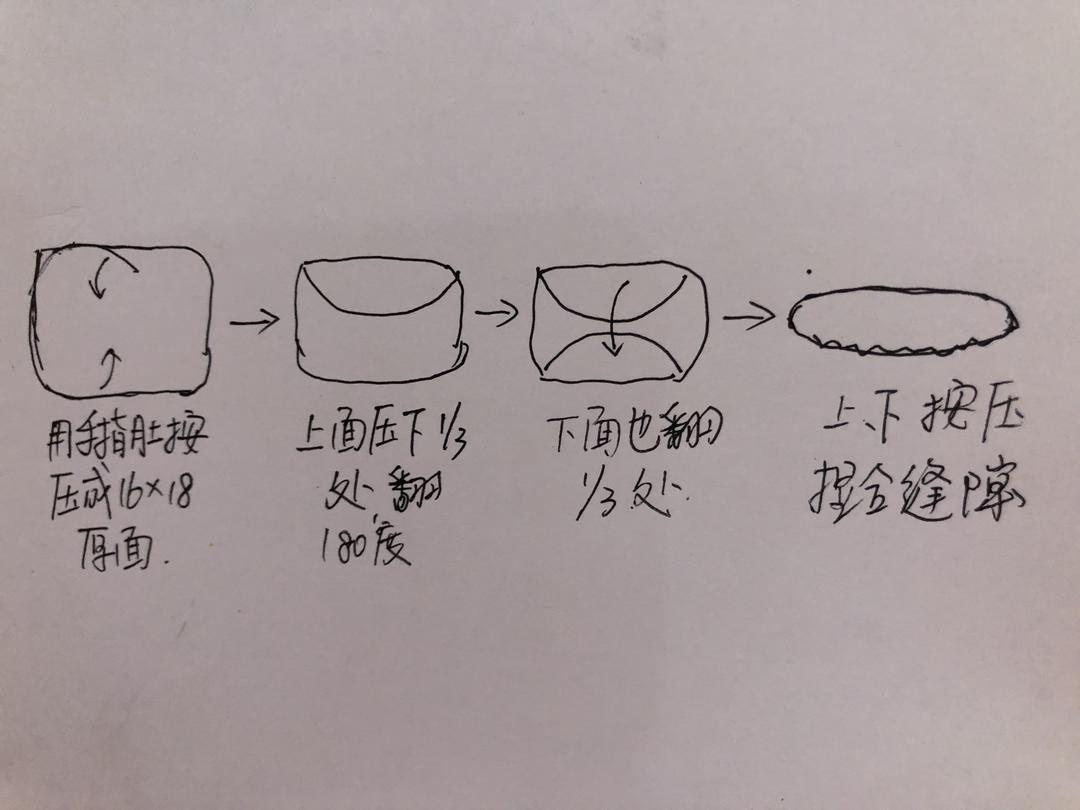 用手指肚按
压成16×18
厚面.
上面压下1/3
处翻
180度
下面也翻
1/3处.
上、下按压
捏合缝隙